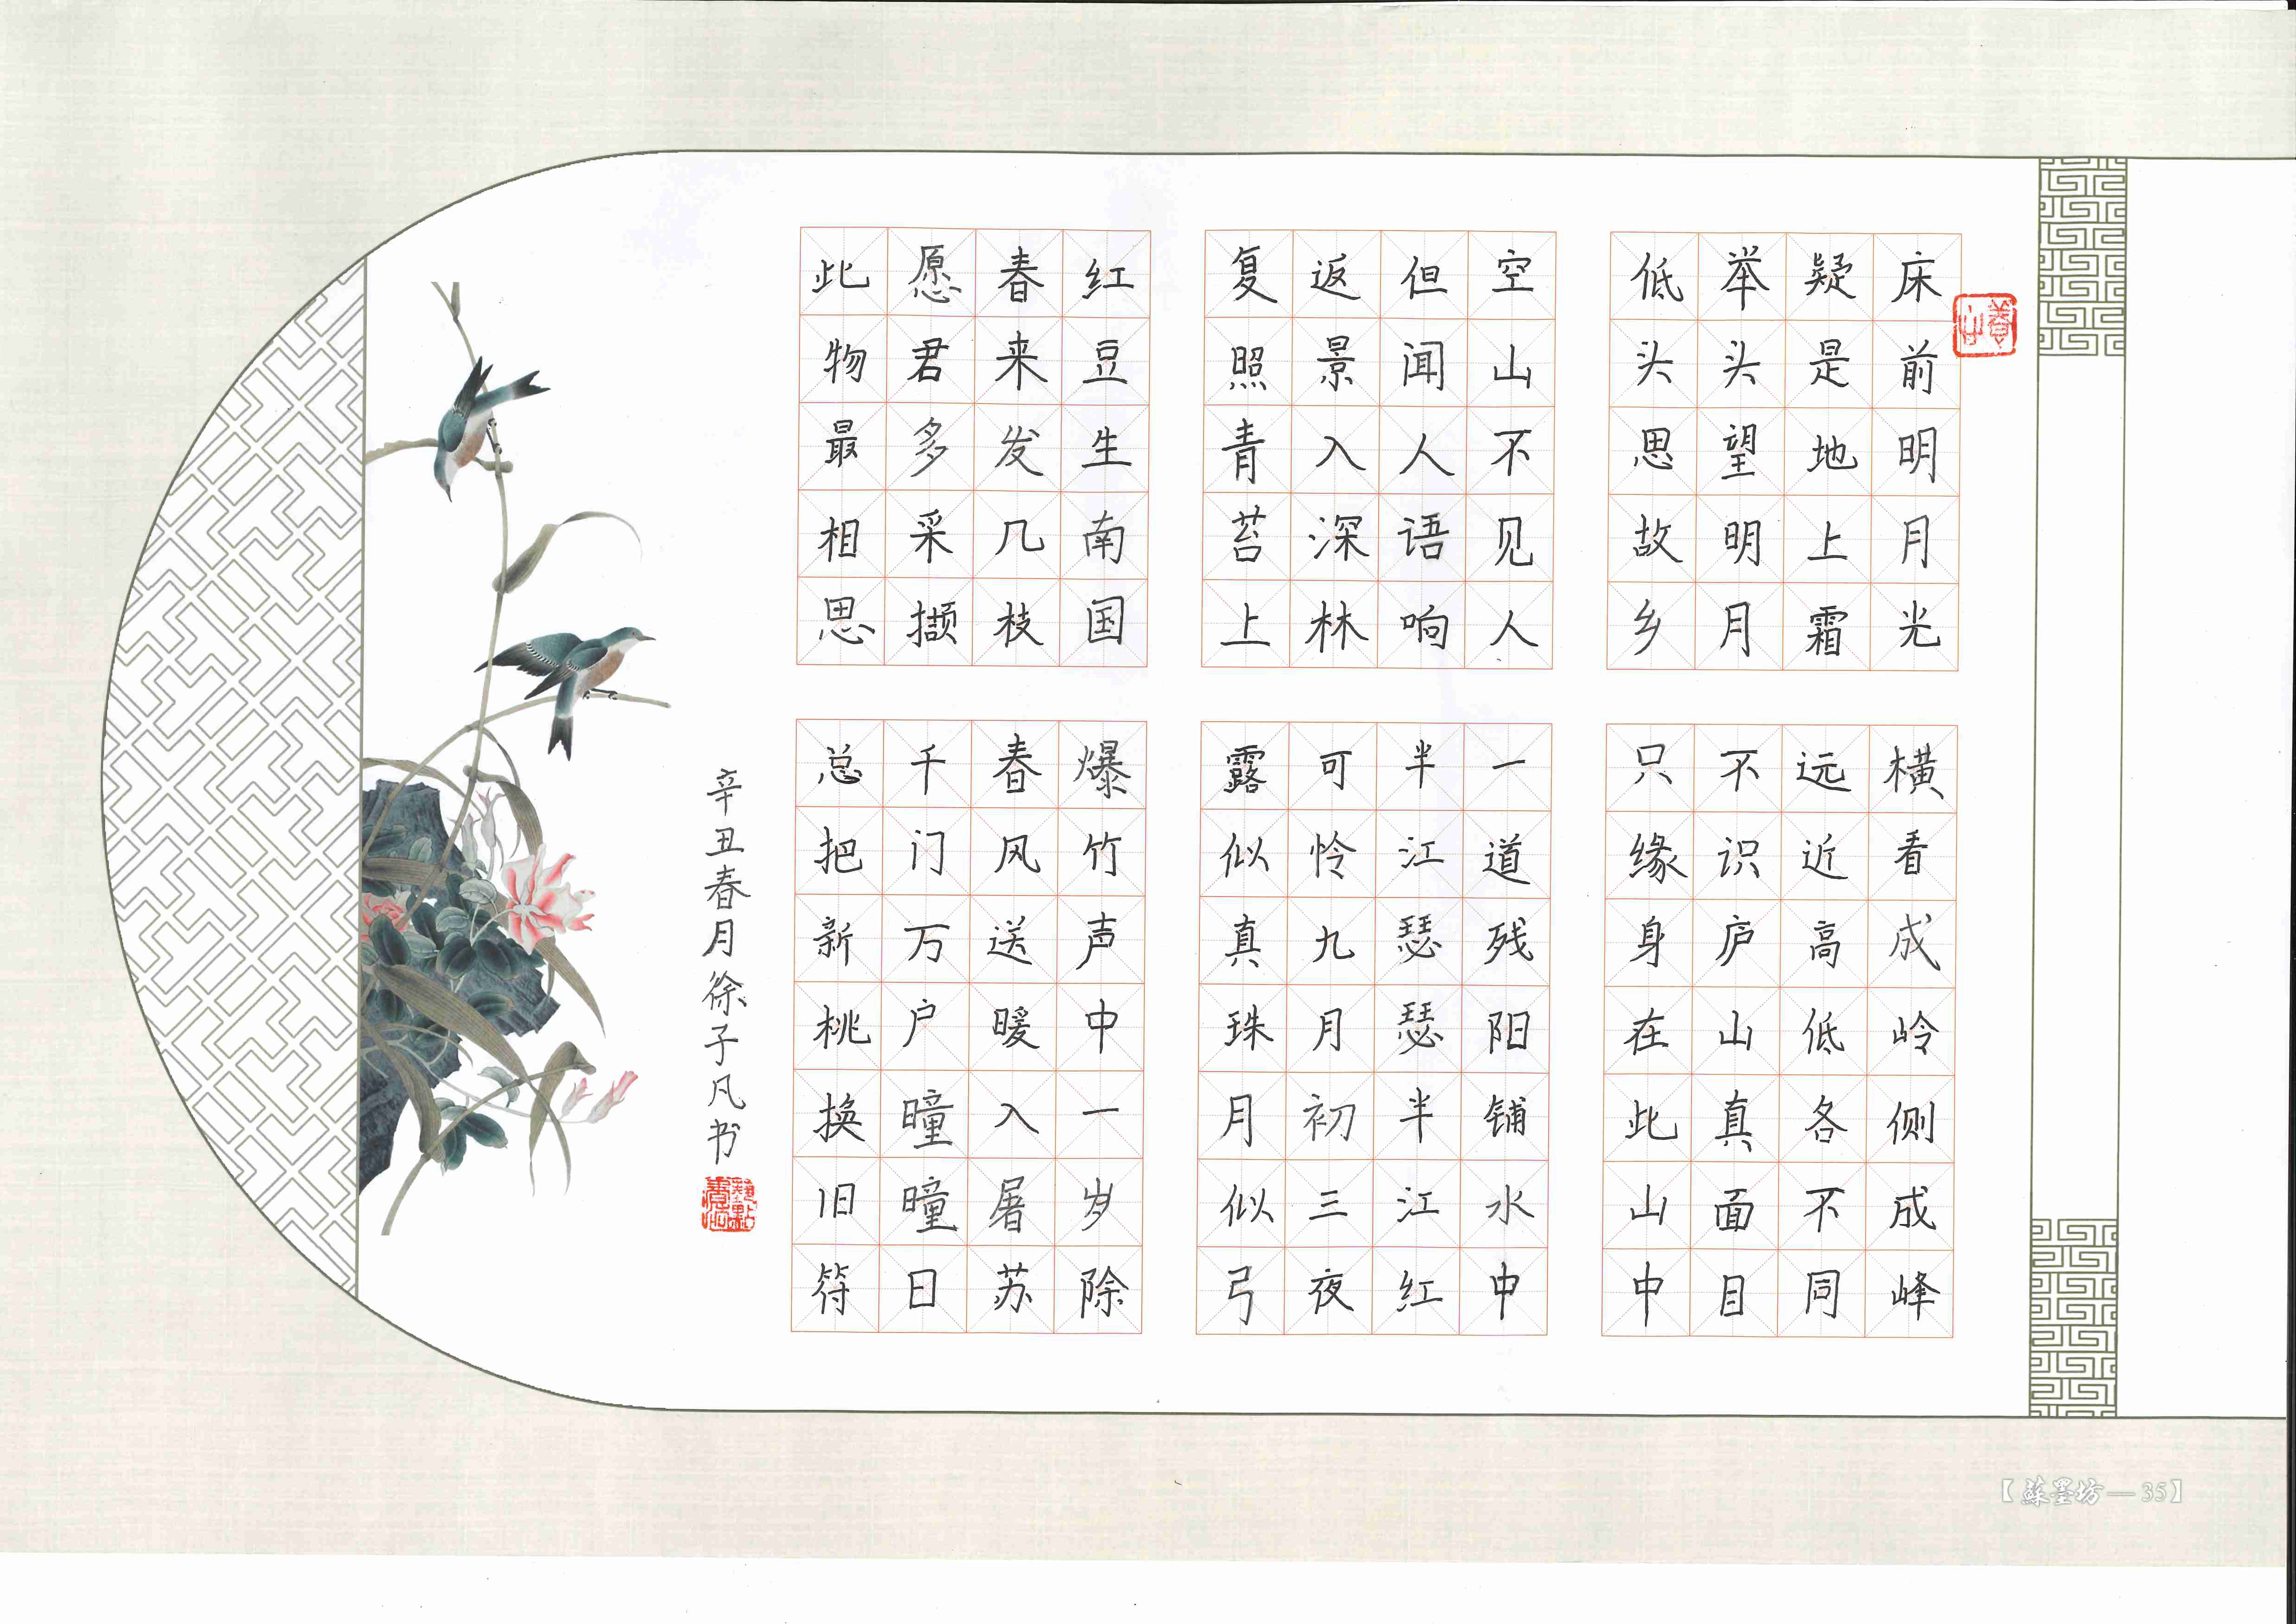 床前明月光
疑是地上霜
举头望明月
低头思故乡
空山不见人
但闻人语响
返景入深林
复照青苔上
红豆生南国
春来发几枝
愿君多采撷
此物最相思
横看成岭侧成峰
远近高低各不同
不识庐山真面目
只缘身在此山中
一道残阳铺水中
半江瑟瑟半江红
可怜九月初三夜
露似真珠月似弓
爆竹声中一岁除
春风送暖入屠苏
千门万户曈曈日
总把新桃换旧符
辛丑春月徐子凡书
【蘇墨坊—35】